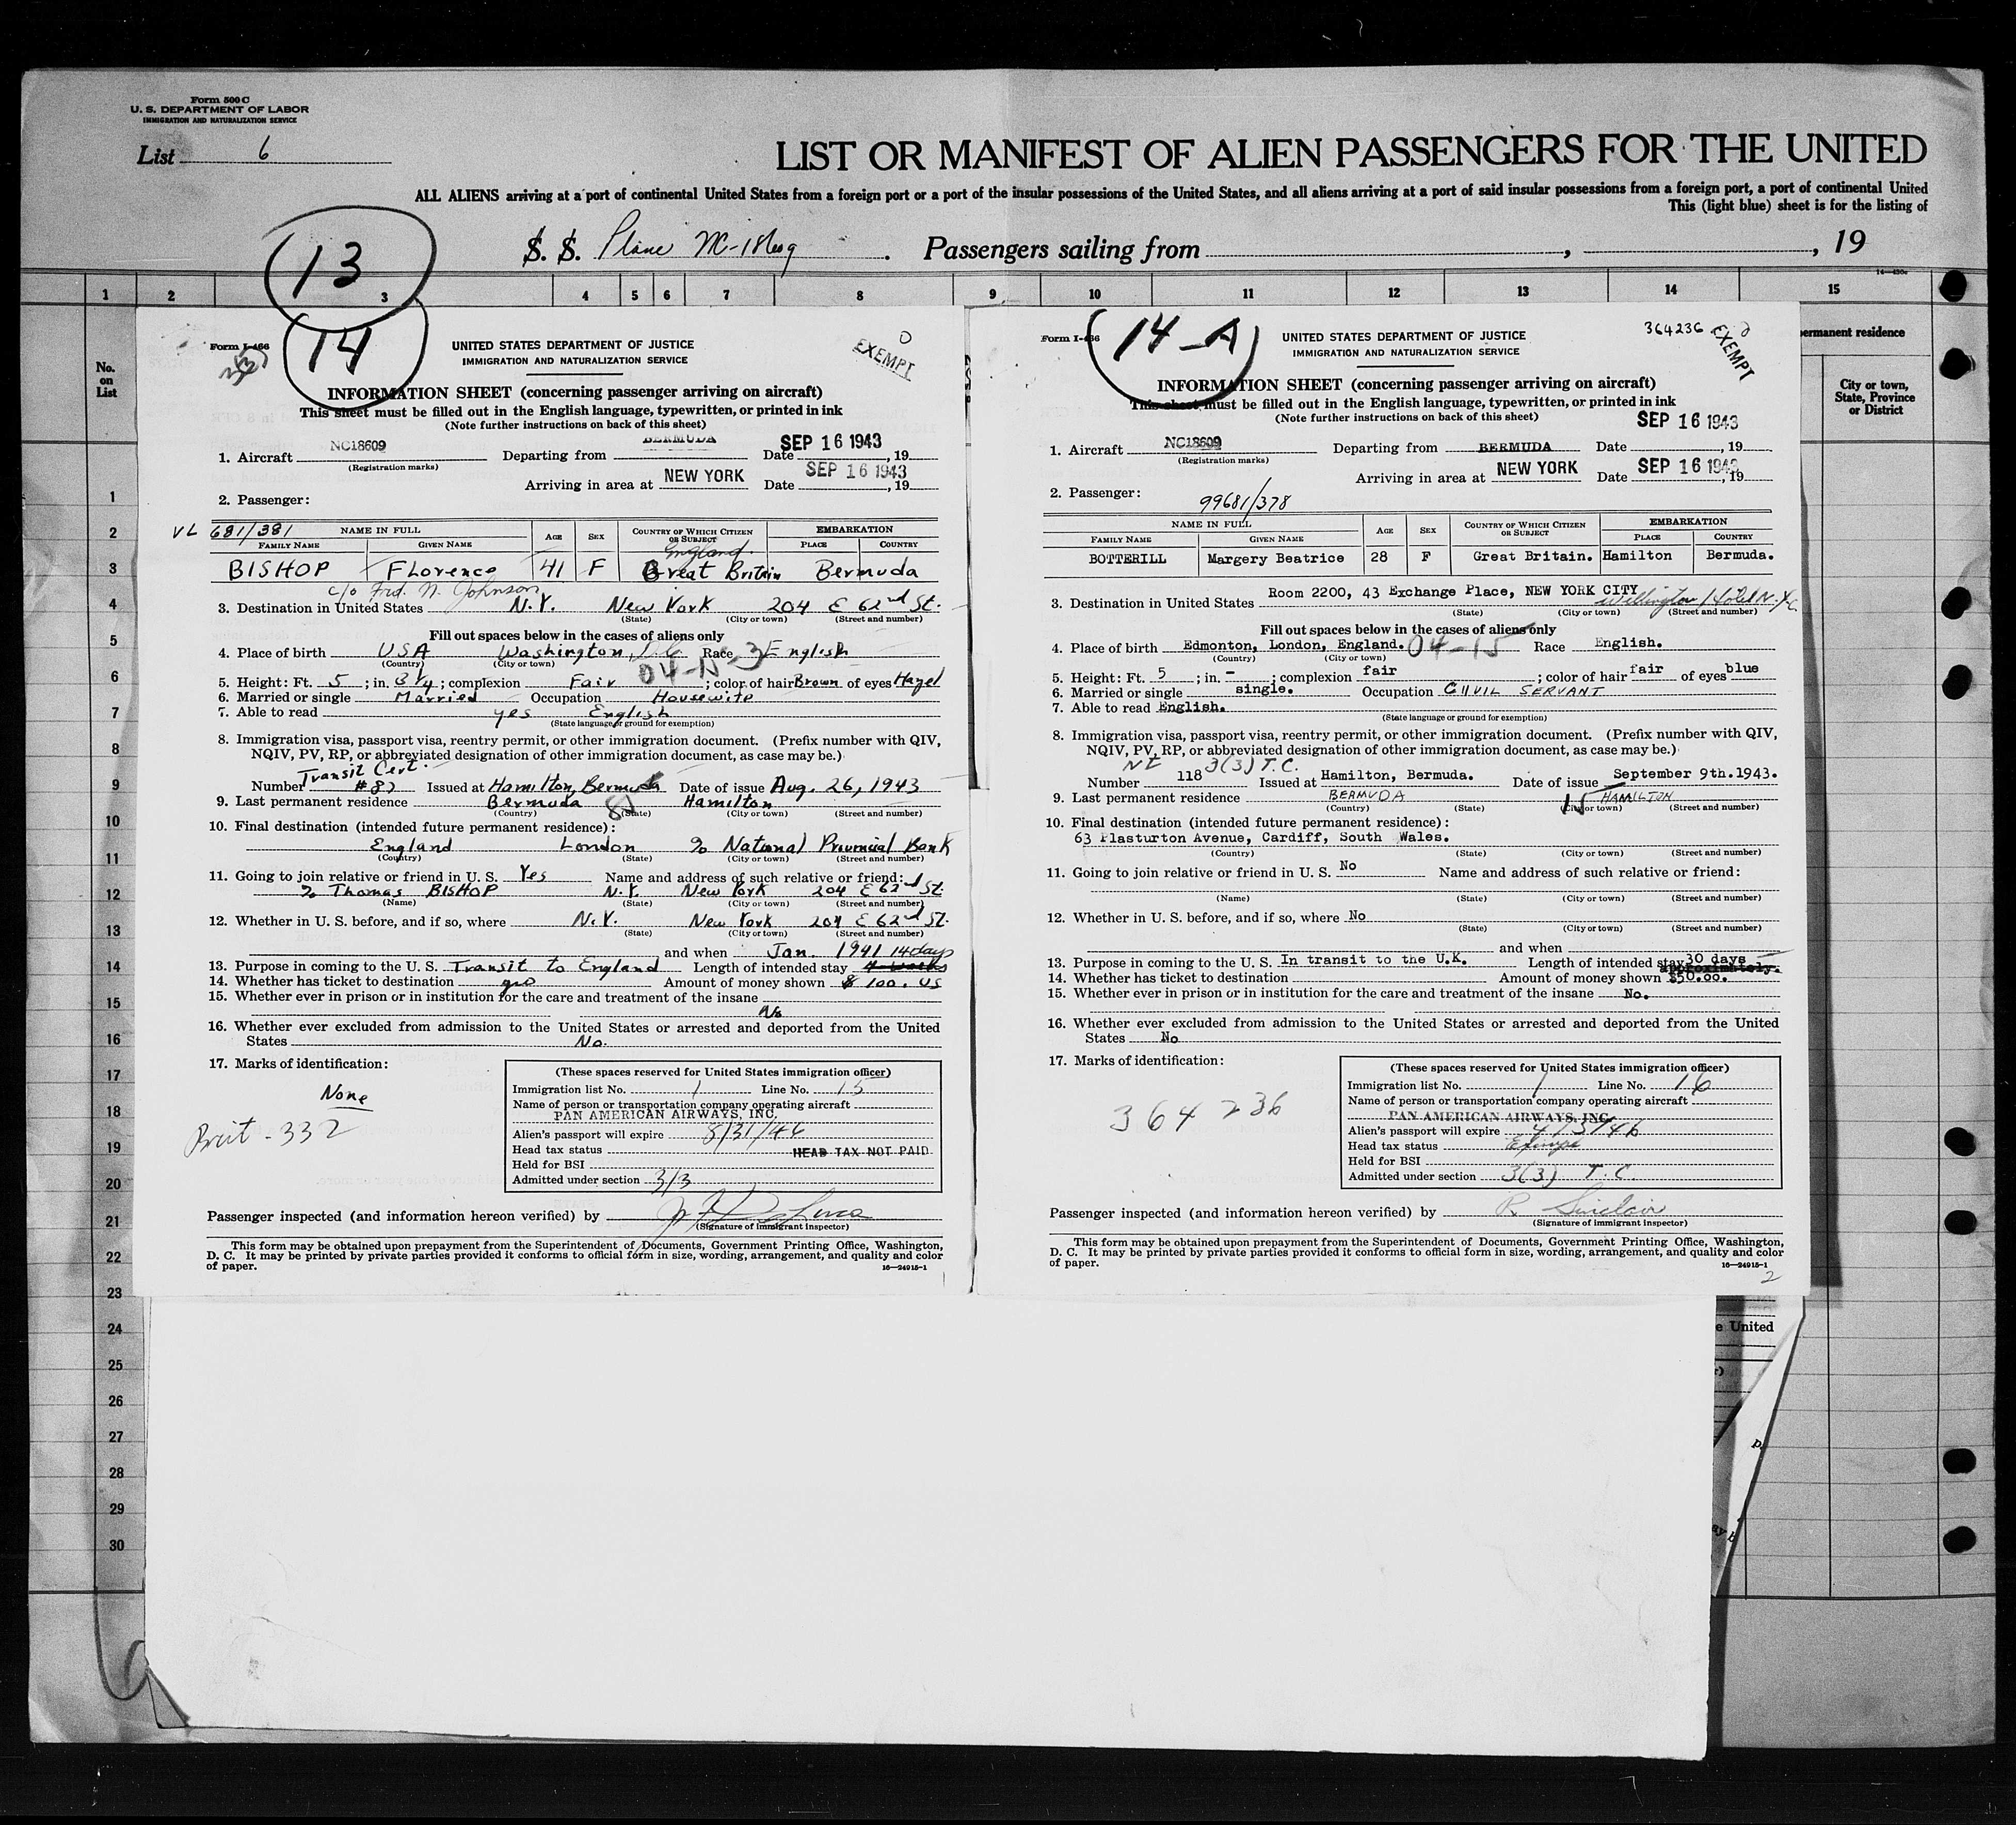 Form 500 C
U. S. DEPARTMENT OF LABOR
IMMIGRATION AND NATURALIZATION SERVICE
List 6
LIST OR MANIFEST OF ALIEN PASSENGERS FOR THE UNITED
ALL ALIENS arriving at a port of continental United States from a foreign port or a port of the insular possessions of the United States, and all aliens arriving at a port of said insular possessions from a foreign port, a port of continental United
This (light blue) sheet is for the listing of
13
S. S. Plane NC-18609. Passengers sailing from , , 19
14—430c
1 2 3 4 5 6 7 8 9 10 11 12 13 14 15
No. on List
ermanent residence
City or town, State, Province or District
1
2
3
4
5
6
7
8
9
10
11
12
13
14
15
16
17
18
19
20
21
22
23
24
25
26
27
28
29
30
e United
Form I-466
14
UNITED STATES DEPARTMENT OF JUSTICE
IMMIGRATION AND NATURALIZATION SERVICE
EXEMPT
INFORMATION SHEET (concerning passenger arriving on aircraft)
This sheet must be filled out in the English language, typewritten, or printed in ink
(Note further instructions on back of this sheet)
1. Aircraft NC18609 Departing from BERMUDA Date SEP 16 1943, 19
(Registration marks)
Arriving in area at NEW YORK Date SEP 16 1943, 19
2. Passenger:
VL 681/381 NAME IN FULL AGE SEX COUNTRY OF WHICH CITIZEN OR SUBJECT EMBARKATION
FAMILY NAME GIVEN NAME PLACE COUNTRY
England
BISHOP Florence 41 F Great Britain Bermuda
c/o Frd. N. Johnson
3. Destination in United States N.Y. New York 204 E 62nd St.
(State) (City or town) (Street and number)
Fill out spaces below in the cases of aliens only
4. Place of birth USA Washington, D.C. Race English
(Country) (City or town)
04-N-3
5. Height: Ft. 5; in. 3 1/4; complexion Fair; color of hair Brown of eyes Hazel
6. Married or single Married Occupation Housewife
7. Able to read yes English
(State language or ground for exemption)
8. Immigration visa, passport visa, reentry permit, or other immigration document. (Prefix number with QIV,
NQIV, PV, RP, or abbreviated designation of other immigration document, as case may be.)
Transit Cert.
Number #82 Issued at Hamilton, Bermuda Date of issue Aug. 26, 1943
9. Last permanent residence Bermuda Hamilton
(Country) (State) (City or town) (Street and number)
10. Final destination (intended future permanent residence):
England London % National Provincial Bank
(Country) (State) (City or town) (Street and number)
11. Going to join relative or friend in U. S. Yes Name and address of such relative or friend:
% Thomas BISHOP N.Y. New York 204 E 62nd St.
(Name) (State) (City or town) (Street and number)
12. Whether in U. S. before, and if so, where N.Y. New York 204 E 62nd St.
(State) (City or town) (Street and number)
and when Jan. 1941 14 days
13. Purpose in coming to the U. S. Transit to England Length of intended stay 4 weeks
14. Whether has ticket to destination yes Amount of money shown $ 100. US
15. Whether ever in prison or in institution for the care and treatment of the insane
No
16. Whether ever excluded from admission to the United States or arrested and deported from the United
States No.
17. Marks of identification:
None
Brit - 332
(These spaces reserved for United States immigration officer)
Immigration list No. 1 Line No. 15
Name of person or transportation company operating aircraft
PAN AMERICAN AIRWAYS, INC.
Alien's passport will expire 8/31/46
Head tax status HEAD TAX NOT PAID
Held for BSI
Admitted under section 3/3
Passenger inspected (and information hereon verified) by
(Signature of immigrant inspector)
This form may be obtained upon prepayment from the Superintendent of Documents, Government Printing Office, Washington,
D. C. It may be printed by private parties provided it conforms to official form in size, wording, arrangement, and quality and color
of paper.
16—24915-1
Form I-466
14-A
UNITED STATES DEPARTMENT OF JUSTICE
IMMIGRATION AND NATURALIZATION SERVICE
364236
EXEMPT
INFORMATION SHEET (concerning passenger arriving on aircraft)
This sheet must be filled out in the English language, typewritten, or printed in ink
(Note further instructions on back of this sheet)
SEP 16 1943
1. Aircraft NC18609 Departing from BERMUDA Date , 19
(Registration marks)
Arriving in area at NEW YORK Date SEP 16 1943, 19
2. Passenger:
99681/378
NAME IN FULL AGE SEX COUNTRY OF WHICH CITIZEN OR SUBJECT EMBARKATION
FAMILY NAME GIVEN NAME PLACE COUNTRY
BOTTERILL Margery Beatrice 28 F Great Britain. Hamilton Bermuda.
3. Destination in United States Room 2200, 43 Exchange Place, NEW YORK CITY Wellington Hotel N.Y.C.
(State) (City or town) (Street and number)
Fill out spaces below in the cases of aliens only
4. Place of birth Edmonton, London, England. 04-15 Race English.
(Country) (City or town)
5. Height: Ft. 5; in. -; complexion fair; color of hair fair of eyes blue
6. Married or single single. Occupation CIIVIL SERVANT
7. Able to read English.
(State language or ground for exemption)
8. Immigration visa, passport visa, reentry permit, or other immigration document. (Prefix number with QIV,
NQIV, PV, RP, or abbreviated designation of other immigration document, as case may be.)
Nt 3(3) T.C.
Number 118 Issued at Hamilton, Bermuda. Date of issue September 9th.1943.
9. Last permanent residence BERMUDA 15 HAMILTON
(Country) (State) (City or town) (Street and number)
10. Final destination (intended future permanent residence):
63 Plasturton Avenue, Cardiff, South Wales.
(Country) (State) (City or town) (Street and number)
11. Going to join relative or friend in U. S. No Name and address of such relative or friend:
(Name) (State) (City or town) (Street and number)
12. Whether in U. S. before, and if so, where No
(State) (City or town) (Street and number)
and when
13. Purpose in coming to the U. S. In transit to the U.K. Length of intended stay 30 days approximately.
14. Whether has ticket to destination Amount of money shown $50.00.
15. Whether ever in prison or in institution for the care and treatment of the insane No.
16. Whether ever excluded from admission to the United States or arrested and deported from the United
States No
17. Marks of identification:
364236
(These spaces reserved for United States immigration officer)
Immigration list No. 1 Line No. 16
Name of person or transportation company operating aircraft
PAN AMERICAN AIRWAYS, INC.
Alien's passport will expire 4/3/46
Head tax status Exempt
Held for BSI
Admitted under section 3(3) T.C.
Passenger inspected (and information hereon verified) by R Sinclair
(Signature of immigrant inspector)
This form may be obtained upon prepayment from the Superintendent of Documents, Government Printing Office, Washington,
D. C. It may be printed by private parties provided it conforms to official form in size, wording, arrangement, and quality and color
of paper.
16—24915-1
2